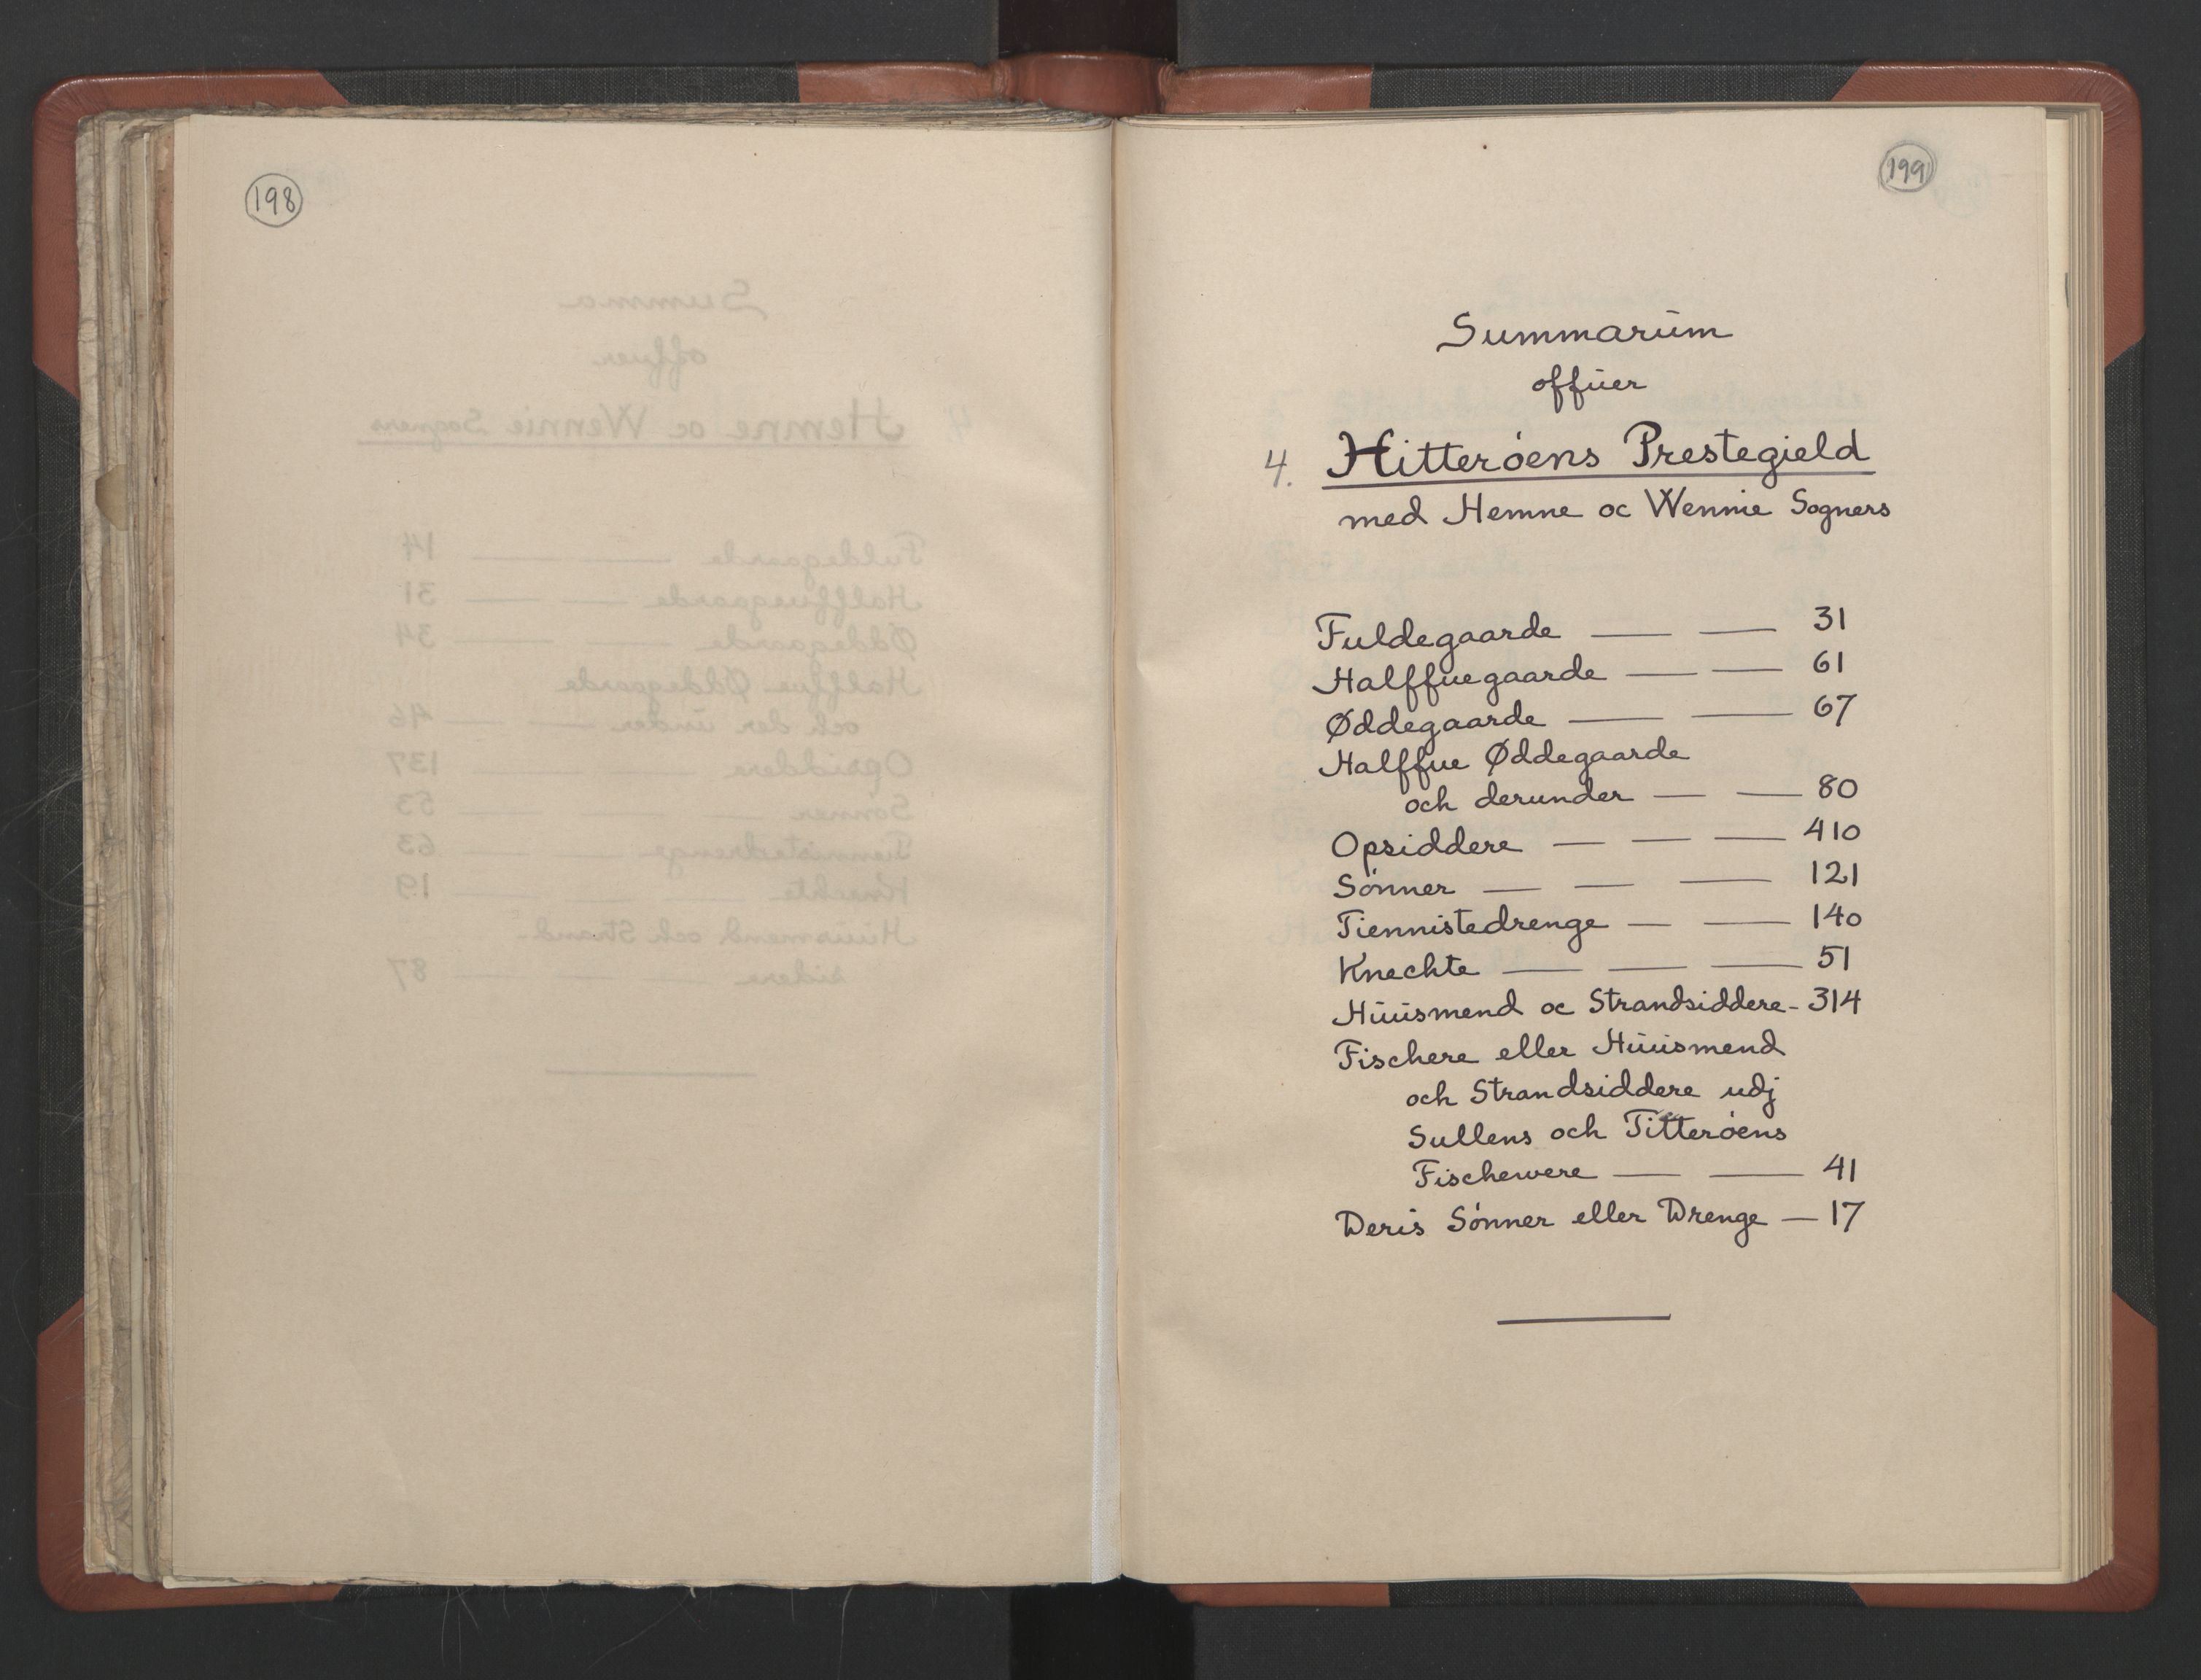 198
199
Summarüm
offüer
4. Hitteröens Prestegield
med Hemne oc Wennie Sogners
Fuldegaarde — — 31
Halffuegaarde — — 61
Øddegaarde — — 67
Halffue Øddegaarde
och derunder — — 80
Opsiddere — — — 410
Sónner — — — 121
Tiennistedrenge — — 140
Knechte — — — 51
Hüüsmend oc Strandsiddere - 314
Fischere eller Hüüsmend
och Strandsiddere udj
Sullens och Titteróens
Fischewere — — 41
Deris Sónner eller Drenge — 17